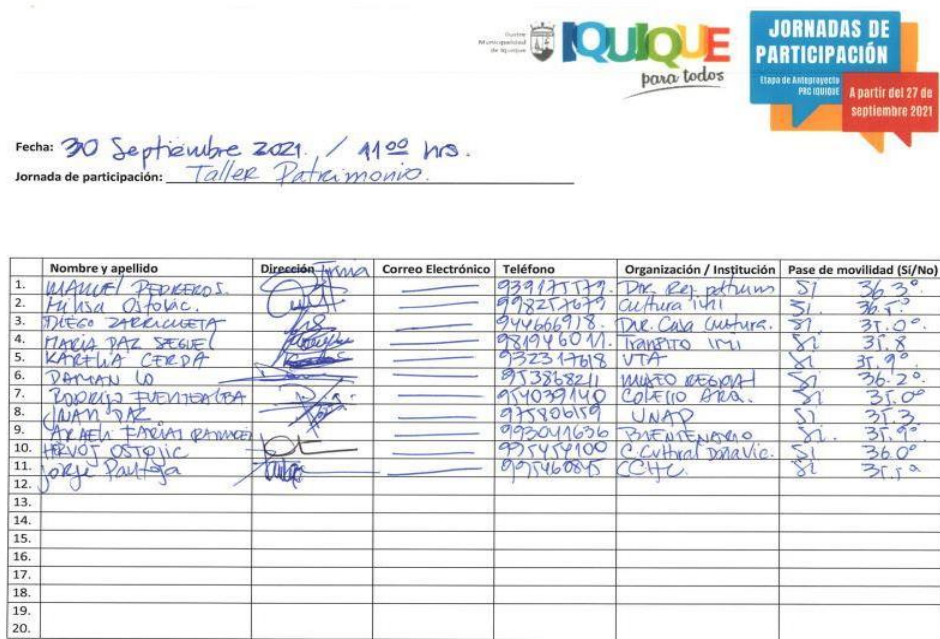 Ilustre Municipalidad de Iquique
IQUIQUE
para todos
JORNADAS DE
PARTICIPACIÓN
Etapa de Anteproyecto
PRC IQUIQUE
A partir del 27 de
septiembre 2021
Fecha: 30 Septiembre 2021. / 11:00 hrs.
Jornada de participación: Taller Patrimonio.
Nombre y apellido Dirección Firma Correo Electrónico Teléfono Organización / Institución Pase de movilidad (Sí/No)
1. MANUEL PEDREROS. 939175579. Dir. Reg. SI 36.3°
2. Ostojic 998257079 Cultura IMI SI. 36.5°
3. DIEGO ZARRICUETA 944666918. Dir. Casa Cultura. SI 35.0°
4. MARIA PAZ SEGUEL 981946011. TRANSITO IMI Si 35.8
5. KARELIA CERDA 932317618 UTA Si 35.9°
6. DAMIAN LO 953868211 MUSEO REGIONAL SI 36.2°
7. RODRIGO FUENTEALBA 954039140 COLEGIO ARQ. Si 35.0°
8. JUAN PAZ 975806159 UNAP SI 35.3
9. ARACELI FARIAS RAMIREZ 993041636 BIENTENARIO SI. 35.9°
10. HERVOJ OSTOJIC 995454100 C. Cultural Donavic. SI 36.0°
11. Jorge Pantoja 995460845 CCHC. Si 35.5°
12.
13.
14.
15.
16.
17.
18.
19.
20.